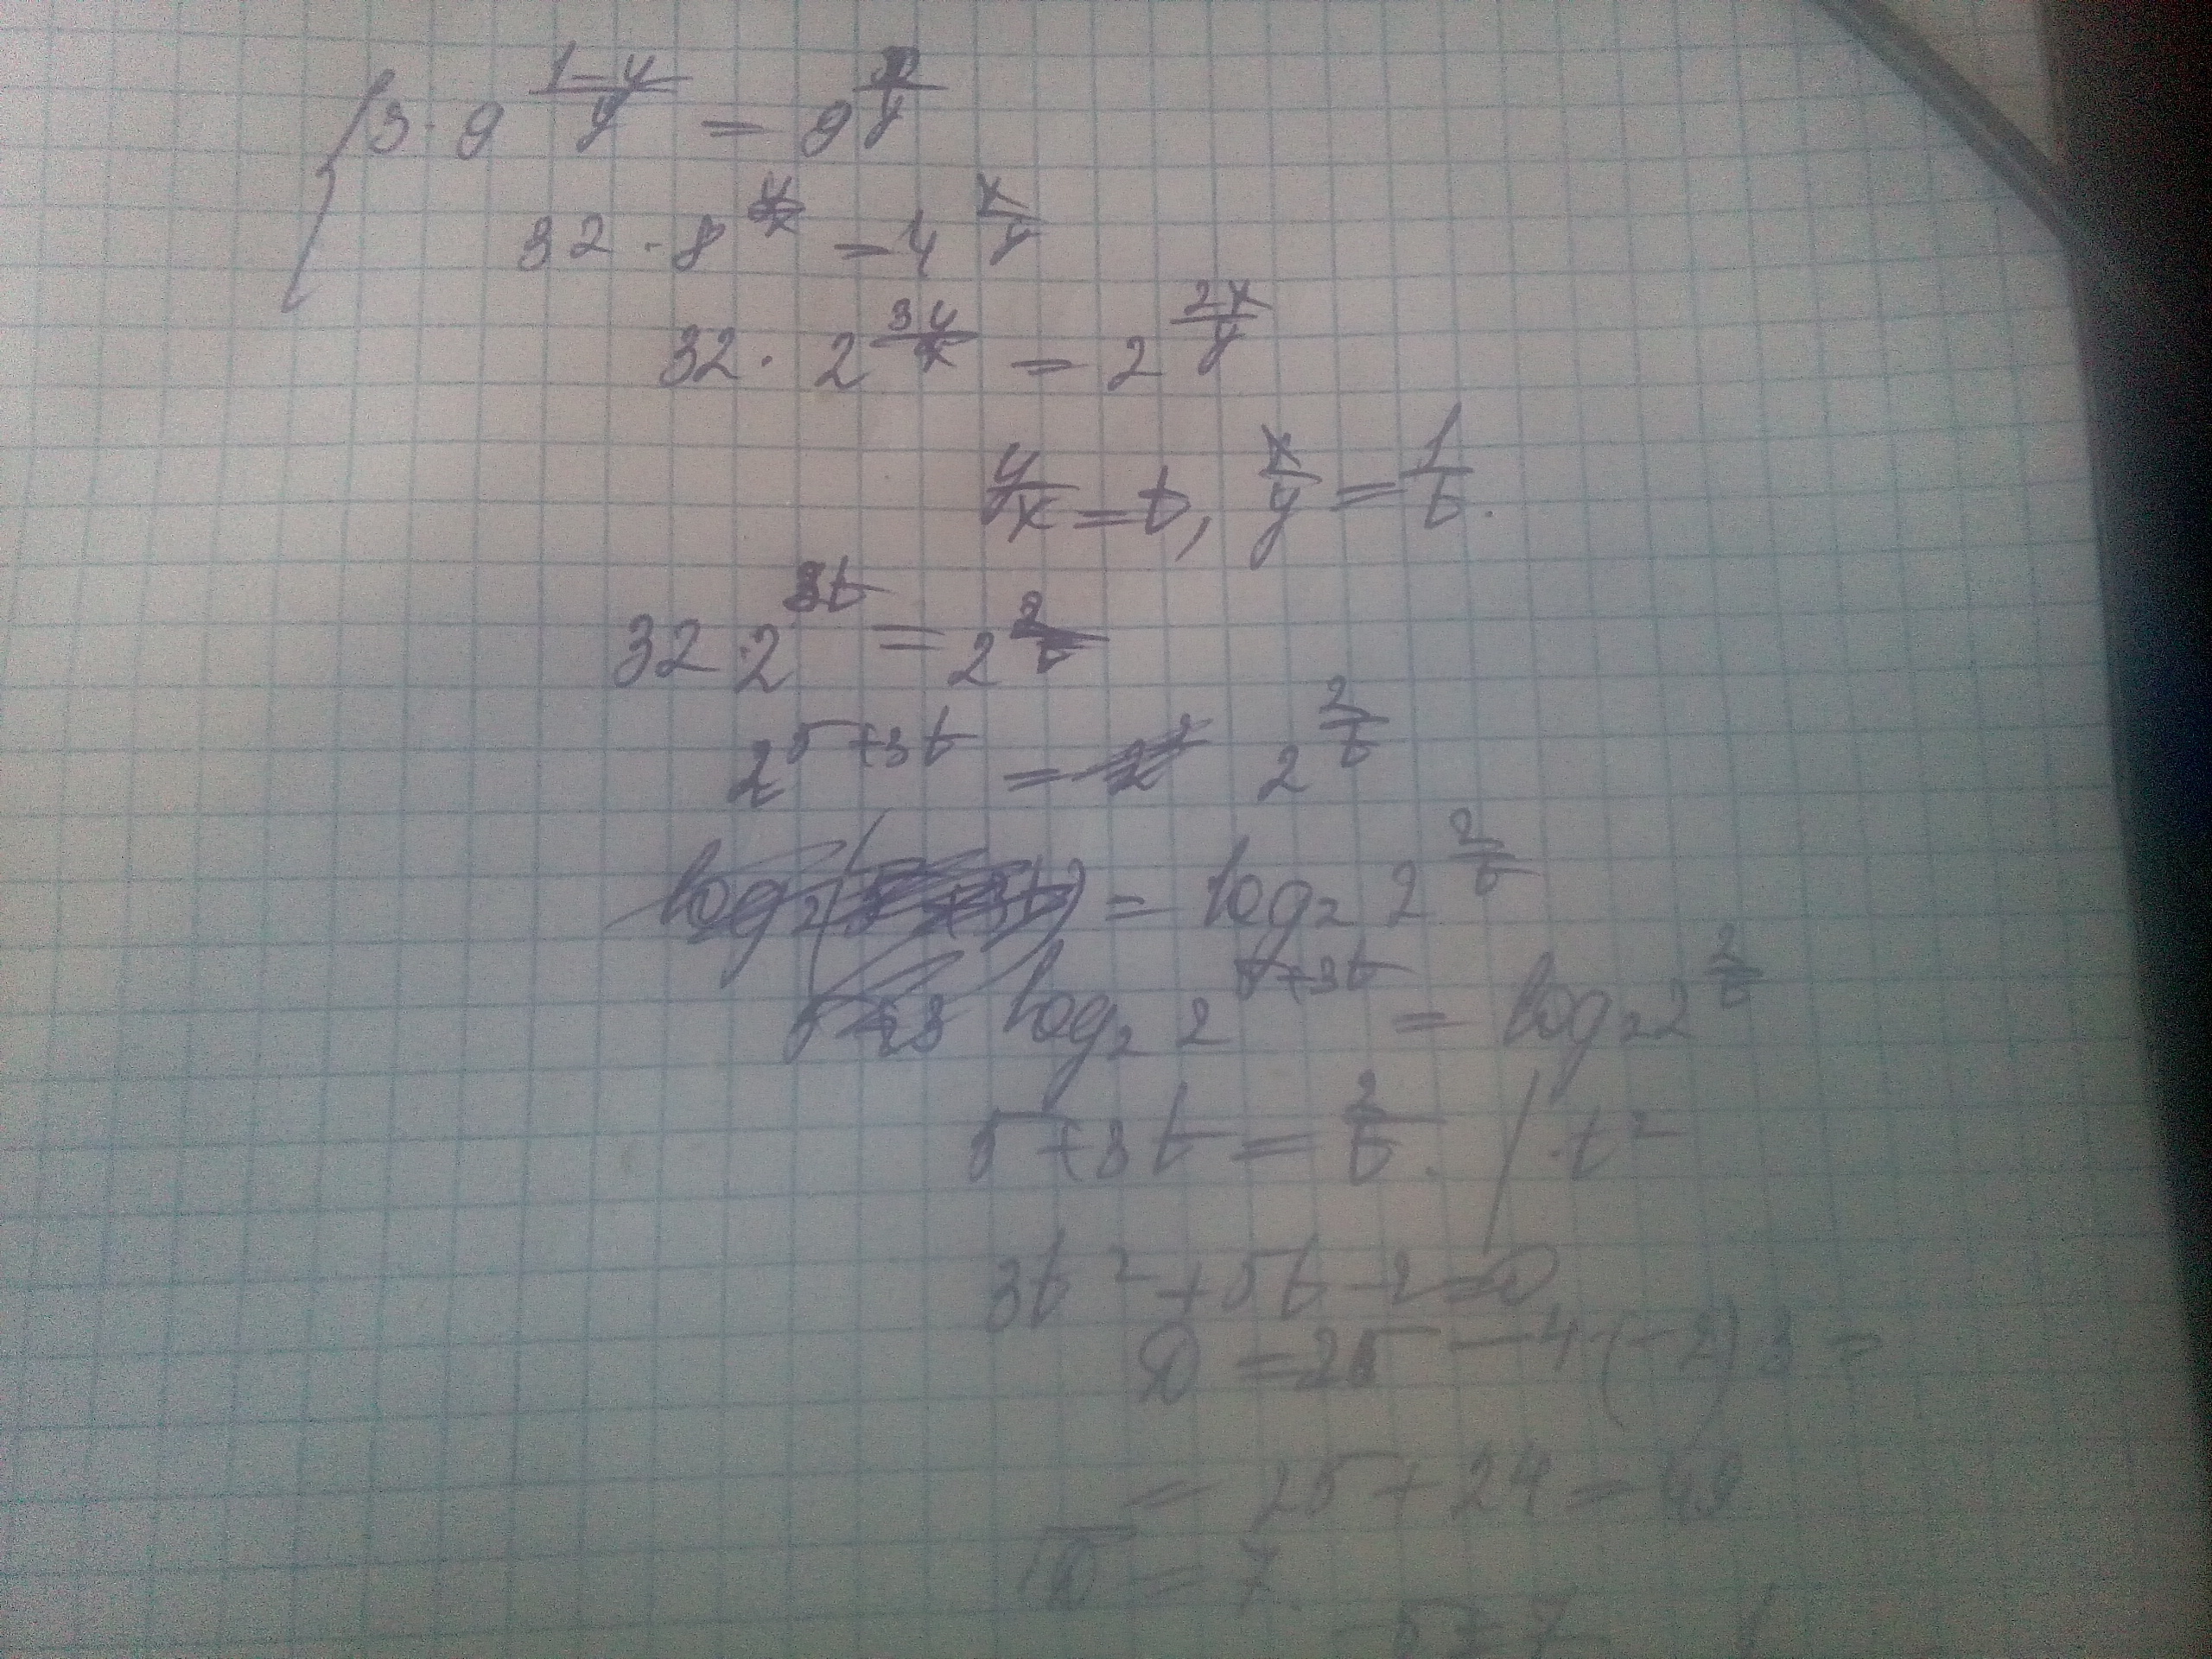 { 3 · 9^((1-y)/y) = 9^(x/y)
32 · 8^(y/x) = 4^(x/y)
32 · 2^(3y/x) = 2^(2x/y)
y/x = t, x/y = 1/t.
32 · 2^(3t) = 2^(2/t)
2^(5+3t) = 2^(2/t)
= log₂ 2^(2/t)
log₂ 2^(5+3t) = log₂ 2^(2/t)
5+3t = 2/t. | · t²
3t² + 5t - 2 = 0
D = 25 - 4·(-2)3 =
= 25 + 24 = 49
√D = 7.